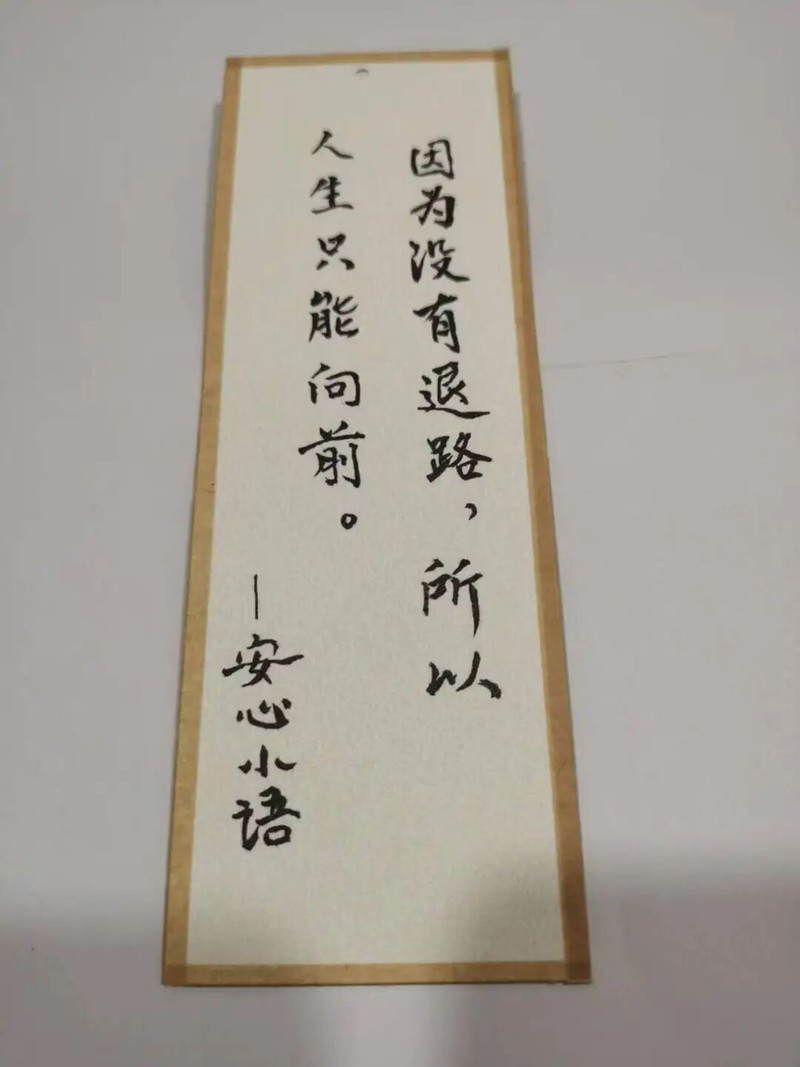 因为没有退路，所以
人生只能向前。
—安心小语